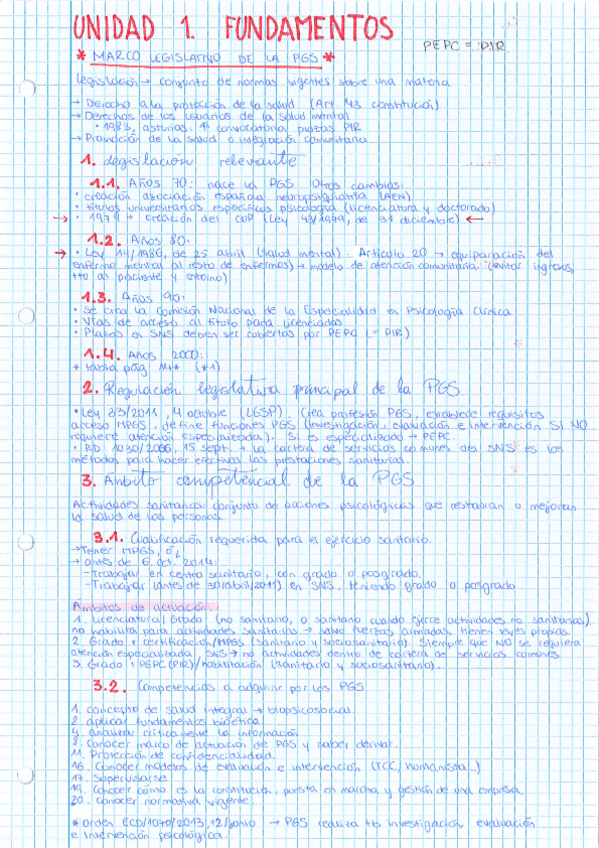 UNIDAD 1. FUNDAMENTOS
PEPC = PIR
* MARCO LEGISLATIVO DE LA PGS *
Legislación → conjunto de normas vigentes sobre una materia
→ Derecho a la protección de la salud (Art. 43 constitución)
→ Derechos de los usuarios de la salud mental
• 1983, asturias: 1ª convocatoria plazas PIR
→ Promoción de la salud o integración comunitaria
1. Legislación relevante
1.1. Años 70: nace la PGS. Otros cambios:
• creación asociación española neuropsiquiatría (AEN)
• títulos universitarios específicos psicología (licenciatura y doctorado)
→ • 1979 → creación del COP (Ley 43/1979, de 31 diciembre) ←
1.2. Años 80:
→ • Ley 14/1986, de 25 abril (salud mental). Artículo 20 → equiparación del
enfermo mental al resto de enfermos) → modelo de atención comunitaria. (evitar ingresos,
tto al paciente y entorno)
1.3. Años 90:
• se crea la Comisión Nacional de la Especialidad en Psicología Clínica
• Vías de acceso al título para licenciados
• Plazas en SNS deben ser cubiertos por PEPC (= PIR)
1.4. Años 2000:
* tabla pág 14* (*1)
2. Regulación legislativa principal de la PGS
• Ley 33/2011, 4 octubre (LGSP). Crea profesión PGS, establece requisitos
acceso MPGS, define funciones PGS (investigación, evaluación e intervención SI NO
requiere atención especializada). Si es especializado → PEPC.
• RD 1030/2006, 15 sept. → la cartera de servicios comunes del SNS es los
métodos para hacer efectivas las prestaciones sanitarias.
3. Ámbito competencial de la PGS
Actividades sanitarias: conjunto de acciones psicológicas que restauran o mejoran
la salud de las personas.
3.1. Cualificación requerida para el ejercicio sanitario.
→ Tener MPGS, ó
→ antes de 6 oct. 2014:
- Trabajar en centro sanitario, con grado o posgrado.
- Trabajar (antes de 30/abril/2011) en SNS, teniendo grado o posgrado
Ámbitos de actuación:
1. Licenciatura/Grado (no sanitario, o sanitario cuando ejerce actividades no sanitarias).
no habilita para actividades sanitarias → salvo fuerzas armadas, tienen leyes propias.
2. Grado + certificación/MPGS (sanitario y sociosanitario). Siempre que NO se requiera
atención especializada, SNS → no actividades dentro de cartera de servicios comunes
3. Grado + PEPC (PIR)/habilitación (sanitario y sociosanitario).
3.2. Competencias a adquirir por los PGS
1. concepto de salud integral → biopsicosocial.
2. aplicar fundamentos bioética
4. analizar críticamente la información
8. Conocer marco de actuación de PGS y saber derivar.
11. Protección de confidencialidad.
16. Conocer modelos de evaluación e intervención (TCC, humanista...)
17. Supervisarse.
19. Conocer cómo es la constitución, puesta en marcha y gestión de una empresa.
20. Conocer normativa vigente.
* Orden ECD/1070/2013, 12/junio → PGS realiza tto investigación, evaluación
e intervención psicológica.